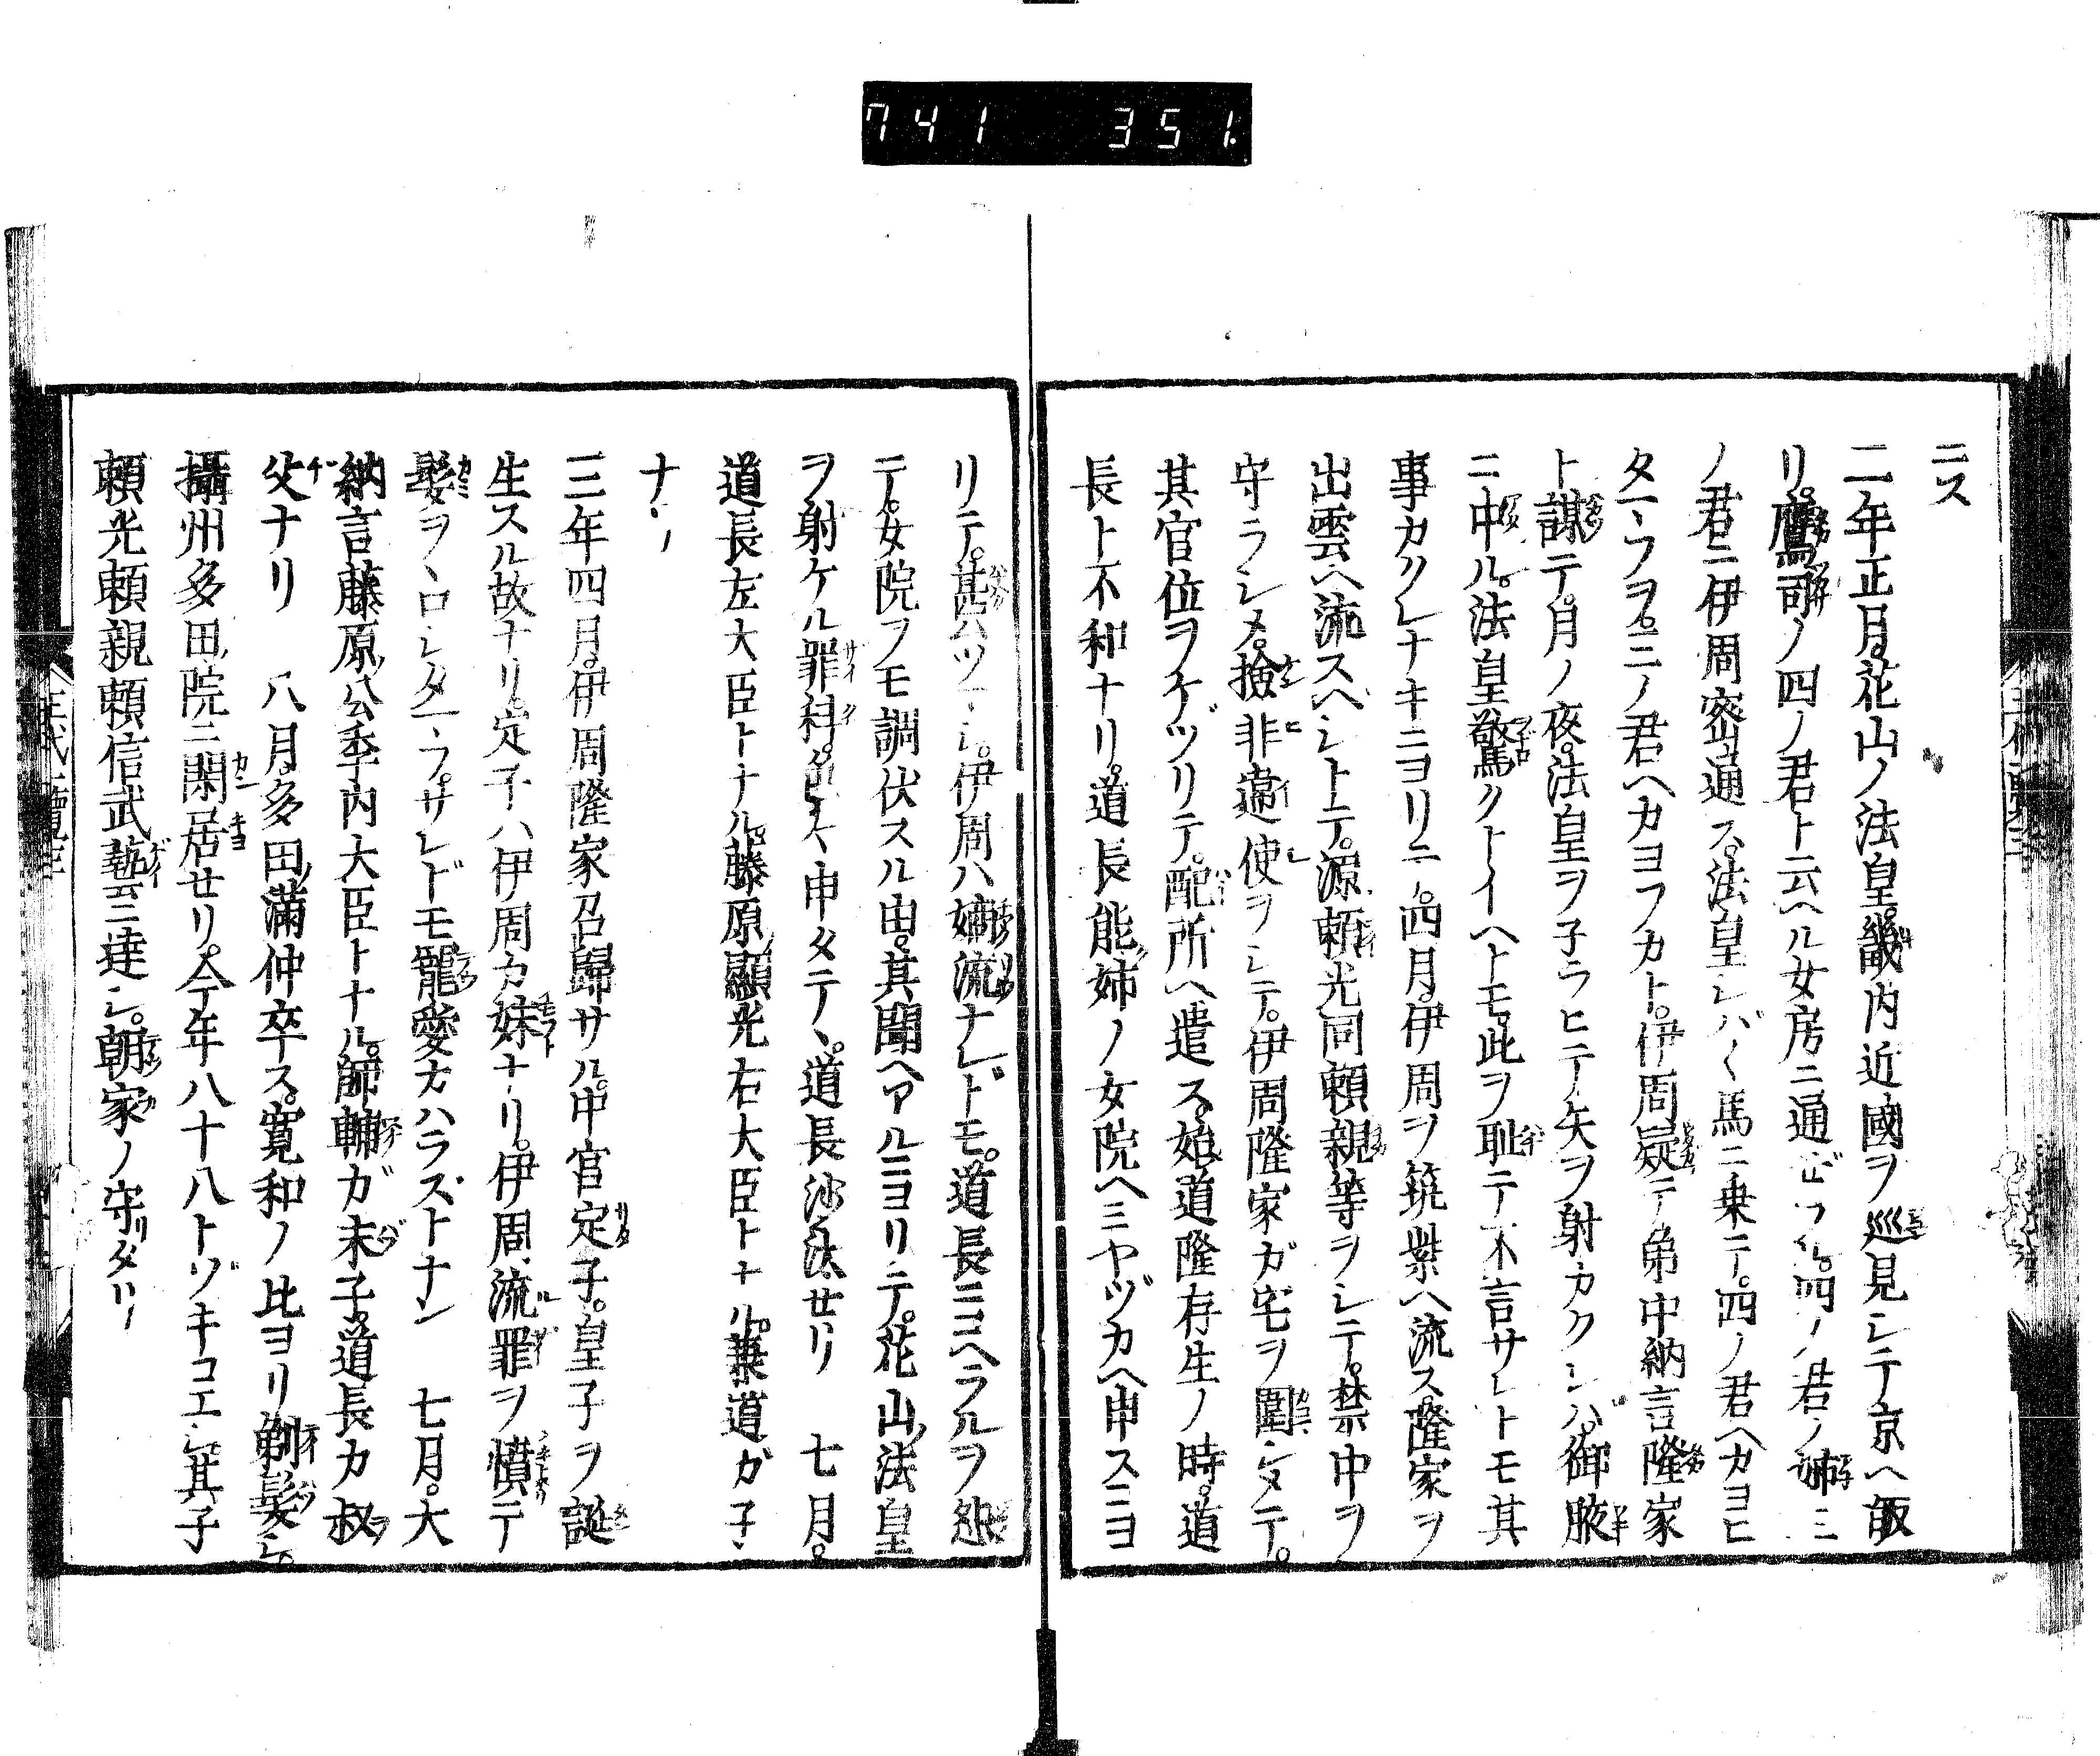 741 351.
ニス
二年正月。花山ノ法皇。畿内近國ヲ巡見シテ京ヘ飯
リ。鷹司ノ四ノ君ト云ヘル女房ニ通ゼラル。四ノ君ノ姉三
ノ君ニ伊周密通ス。法皇シバ〱馬ニ乗テ。四ノ君ヘカヨヒ
タマフヲ。三ノ君ヘカヨフカト。伊周疑テ弟中納言隆家
ト謀テ。月ノ夜。法皇ヲ子ラヒテ矢ヲ射カクシバ。御腋
ニ中ル。法皇驚クトイヘトモ。此ヲ耻テ不言サレトモ其
事カクレナキニヨリテ。四月。伊周ヲ筑紫ヘ流ス。隆家ヲ
出雲ヘ流スヘシトテ。源頼光同頼親等ヲシテ。禁中ヲ
守ラシメ。撿非違使ヲシテ。伊周隆家ガ宅ヲ圍シメテ。
其官位ヲケヅリテ。配所ヘ遣ス。始道隆存生ノ時。道
長ト不和ナリ。道長能姉ノ女院ヘミヤヅカヘ申スニヨ
リテ。甚ハツマシ。伊周ハ嫡流ナレドモ。道長ニコヘラルヲ
テ。女院ヲモ調伏スル由。其聞ヘアルニヨリテ。花山ノ法皇
ヲ射ケル罪科。色々申タテヽ。道長沙汰せリ　七月。
道長左大臣トナル。藤原顯光右大臣トナル。兼道ガ子
ナリ
三年四月。伊周隆家召歸サル。中宮定子。皇子ヲ誕
生スル故ナリ。定子ハ伊周カ妹ナリ。伊周流罪ヲ憤テ
髮ヲヽロシタマフ。サレドモ寵愛カハラズトナン　七月。大
納言藤原ノ公季内大臣トナル。師輔ガ末子。道長カ叔
父ナリ　八月。多田ノ滿仲卒ス。寛和ノ比ヨリ剃髮シ。
攝州多田ノ院ニ閑居せリ。今年八十八トゾキコエシ。其子
頼光頼親頼信武藝ニ達シ。朝家ノ守リタリ